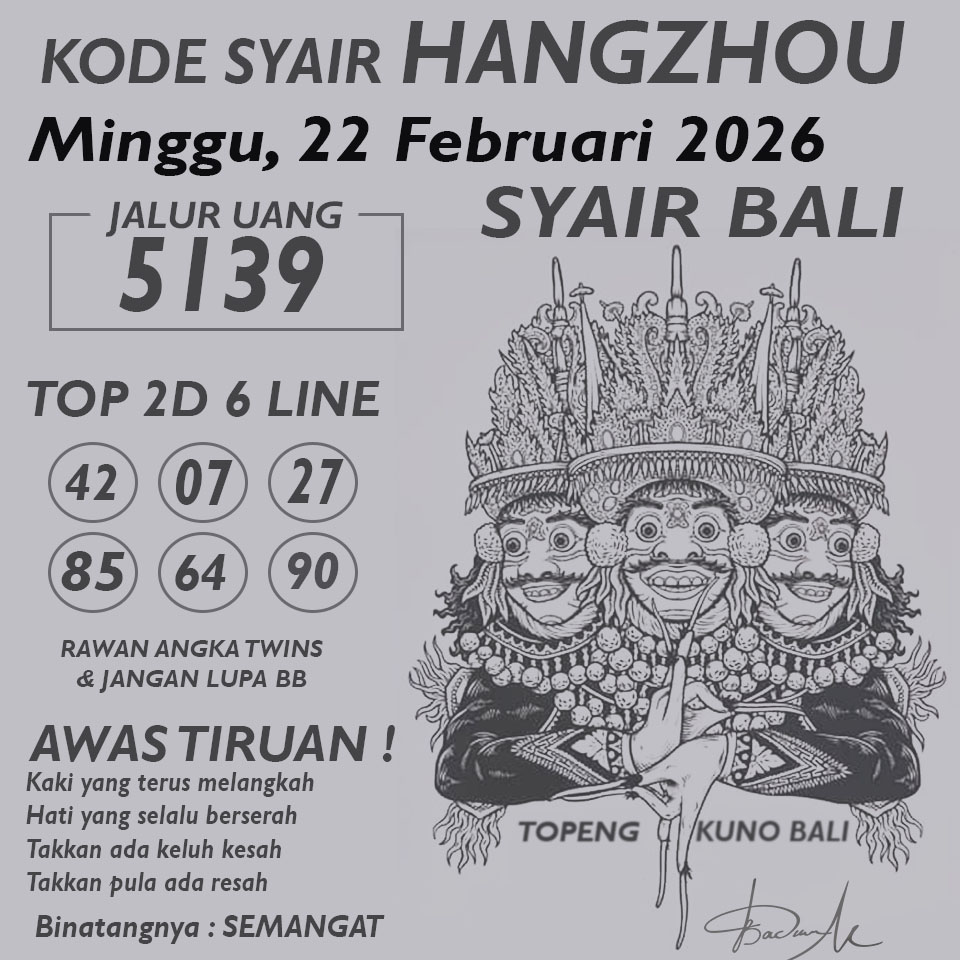 KODE SYAIR HANGZHOU
Minggu, 22 Februari 2026
SYAIR BALI
JALUR UANG
5139
TOP 2D 6 LINE
42 07 27
85 64 90
RAWAN ANGKA TWINS
& JANGAN LUPA BB
AWAS TIRUAN !
Kaki yang terus melangkah
Hati yang selalu berserah
Takkan ada keluh kesah
Takkan pula ada resah
Binatangnya : SEMANGAT
TOPENG KUNO BALI